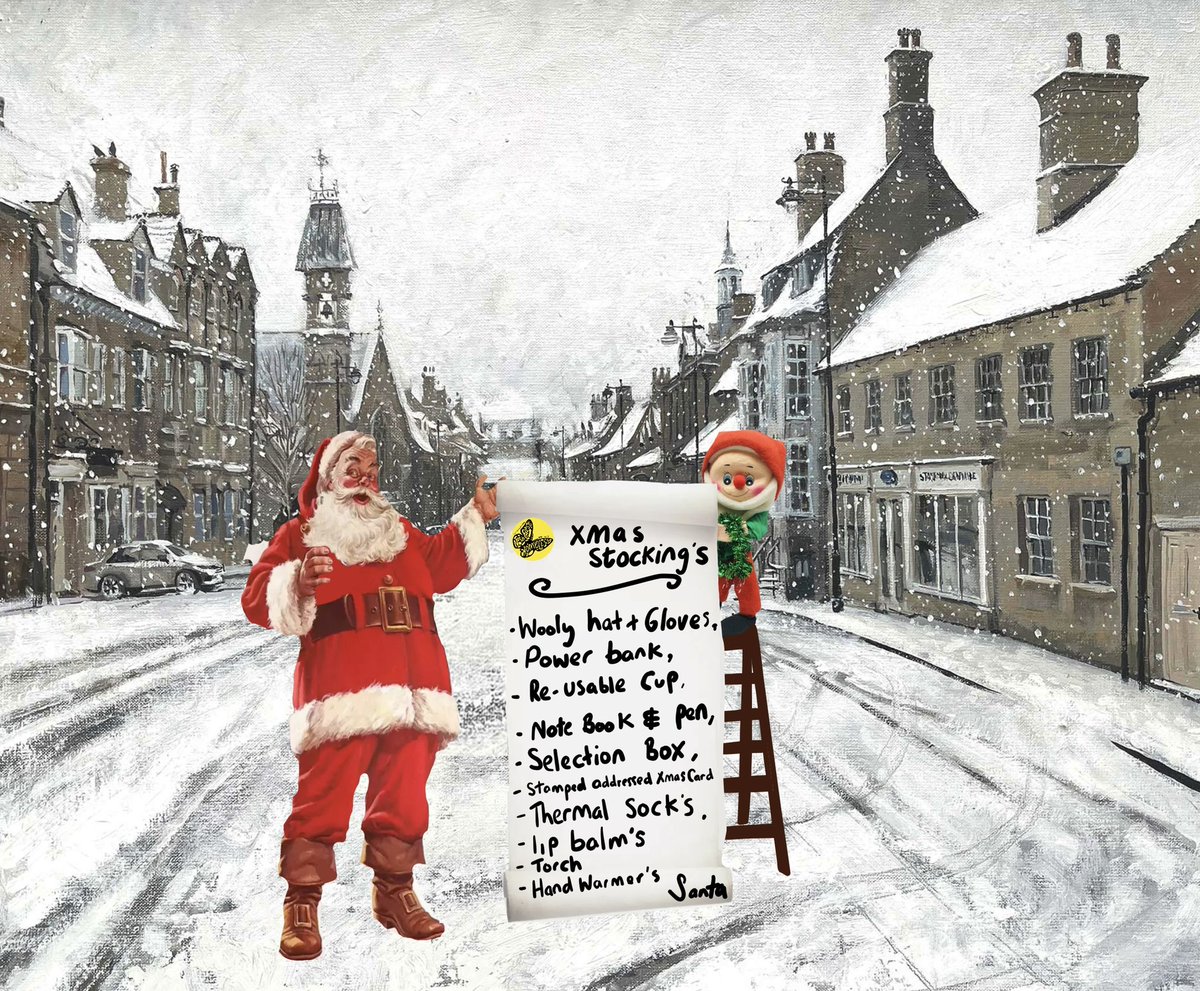 Xmas
Stocking's
- Wooly hat + Gloves,
- Power bank,
- Re-usable Cup,
- Note Book & pen,
- Selection Box,
- Stamped addressed Xmas Card
- Thermal Sock's,
- lip balm's
- Torch
- Hand Warmer's
Santa